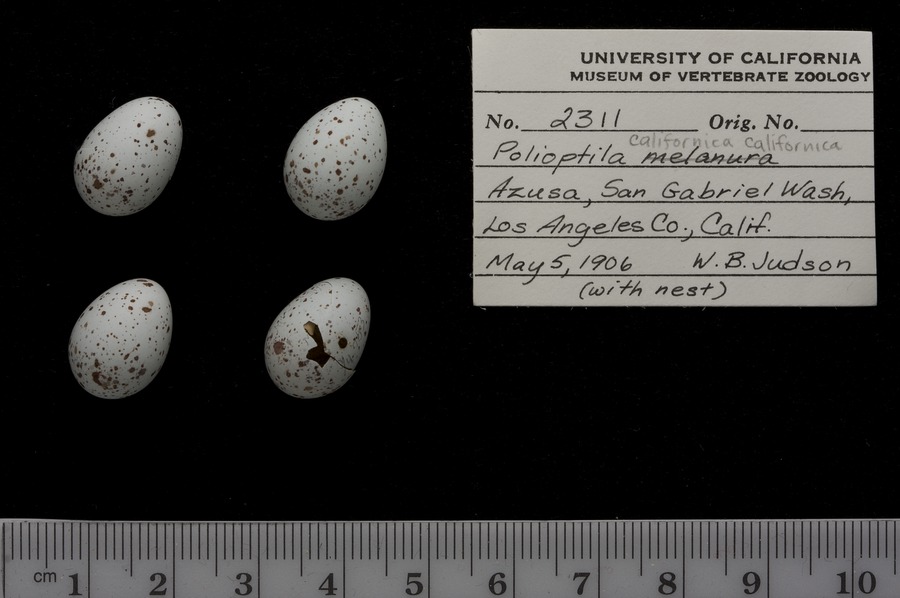 UNIVERSITY OF CALIFORNIA
MUSEUM OF VERTEBRATE ZOOLOGY
No. 2311 Orig. No.
californica californica
Polioptila melanura
Azusa, San Gabriel Wash,
Los Angeles Co., Calif.
May 5, 1906 W. B. Judson
(with nest)
cm 1 2 3 4 5 6 7 8 9 10